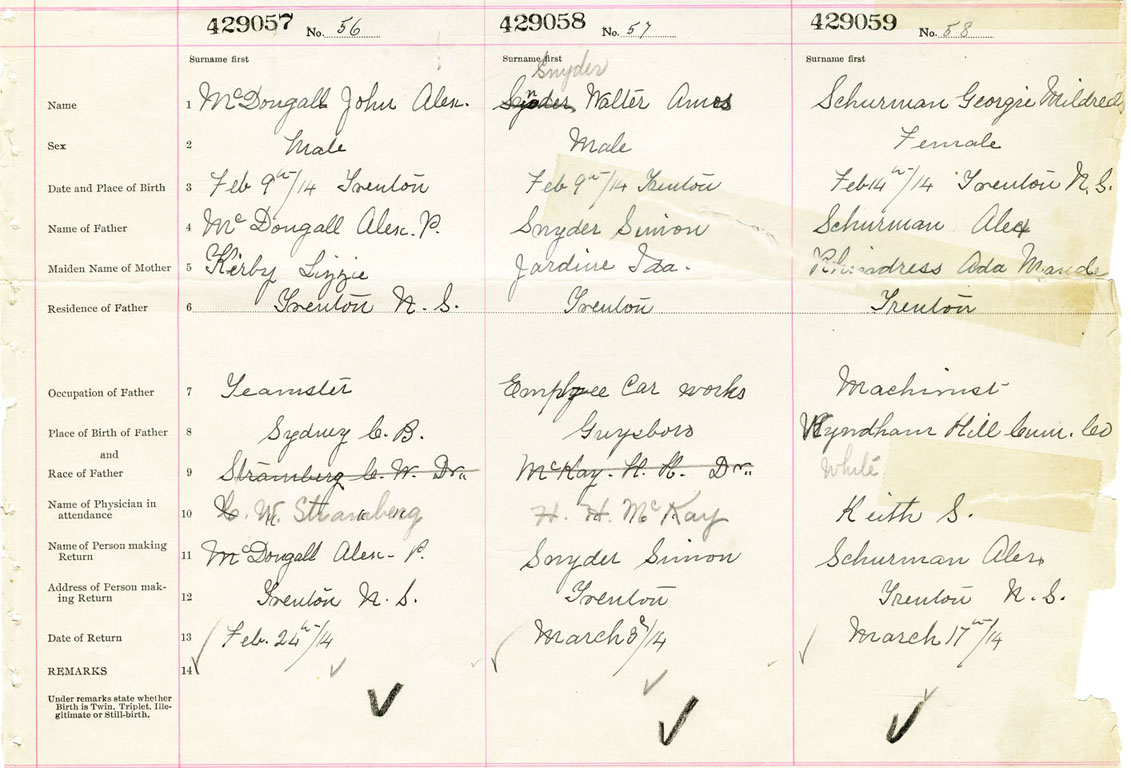 429057 No. 56 429058 No. 57 429059 No. 58
Surname first Surname first Surname first
Snyder
Name 1 McDougall John Alex. Snyder, Walter Amos Schurman Georgie Mildred
Sex 2 Male Male Female
Date and Place of Birth 3 Feb 9th/14 Trenton Feb 9th/14 Trenton Feb 14th/14 Trenton N.S.
Name of Father 4 McDougall Alex. P. Snyder Simon Schurman Alex
Maiden Name of Mother 5 Kirby Lizzie Jardine Ida. Ada Maude
Residence of Father 6 Trenton N. S. Trenton Trenton
Occupation of Father 7 Teamster Employee Car works Machinist
Place of Birth of Father 8 Sydney C. B. Guysboro Wyndham Hill Cum. Co
and
Race of Father 9 Stramberg C. W. Dr. McKay. H. H. Dr. White
Name of Physician in
attendance 10 C. W. Stramberg H. H. McKay Keith S.
Name of Person making
Return 11 McDougall Alex. P. Snyder Simon Schurman Alex
Address of Person mak-
ing Return 12 Trenton N. S. Trenton Trenton N. S.
Date of Return 13 Feb. 24th/14 March 8/14 March 17th/14
REMARKS 14
Under remarks state whether
Birth is Twin, Triplet, Ille-
gitimate or Still-birth.